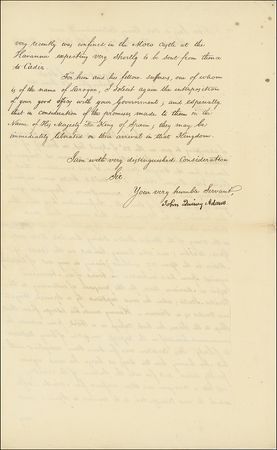 very recently was confined in the Moro castle at the
Havanna expecting very shortly to be sent from thence
to Cadiz.
For him and his fellow sufferers, one of whom
is of the name of Paragon, I solicit again the interposition
of your good offices with your Government; and especially
that in consideration of the promises made to them in the
Name of His Majesty The King of Spain, they may be
immediately liberated on their arrival in that Kingdom.
I am with very distinguished Consideration
Sir
Your very humble Servant,
John Quincy Adams